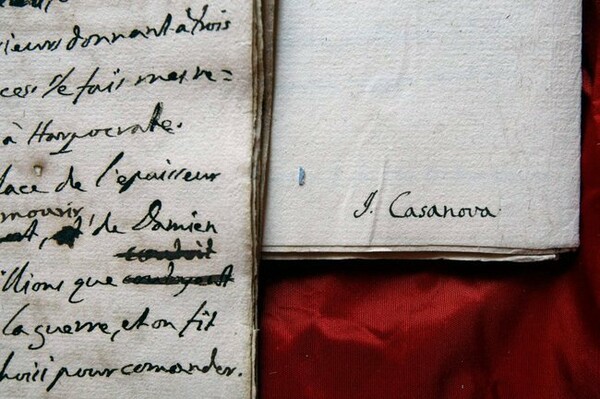 sieurs donnant à trois
ces: Je fais mes re=
à Harpocrate.
place de l'epaisseur
mourir
et, de Damien
illions que
la guerre, et on fit
choisi pour comander.
J. Casanova